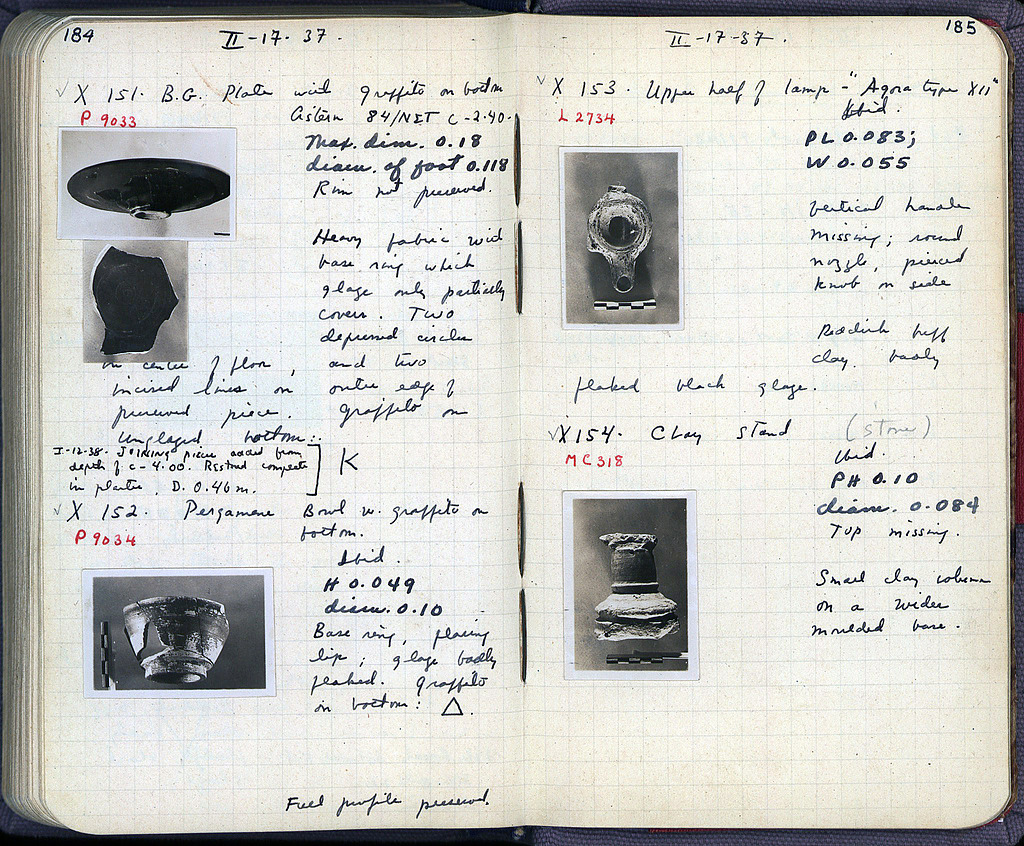 184
II-17-37.
√ X 151. B.G. Plate with graffito on bottom
P 9033
Cistern 84/ΝΣΤ C-2.40.
Max. dim. 0.18
diam. of foot 0.118
Rim not preserved.
Heavy fabric with
base ring which
glaze only partially
covers. Two
depressed circles
in center of floor, and two
incised lines on outer edge of
preserved piece. Graffito on
unglazed bottom:
I-12-38. JOINING piece added from
depth of c-4.00. Restored complete
in plaster. D. 0.46 m.
K
√ X 152. Pergamene Bowl w. graffito on
P 9034
bottom.
Ibid.
H 0.049
diam. 0.10
Base ring, flaring
lip; glaze badly
flaked. Graffito
on bottom: Δ.
Full profile preserved.
185
II-17-37.
√ X 153. Upper half of lamp - "Agora type XII"
L 2734
Ibid.
PL 0.083;
W 0.055
Vertical handle
missing; round
nozzle, pierced
knob on side
Reddish buff
clay. badly
flaked black glaze.
√ X 154. Clay stand (stone)
MC 318
Ibid.
PH 0.10
diam. 0.084
Top missing.
Small clay column
on a wider
moulded base.